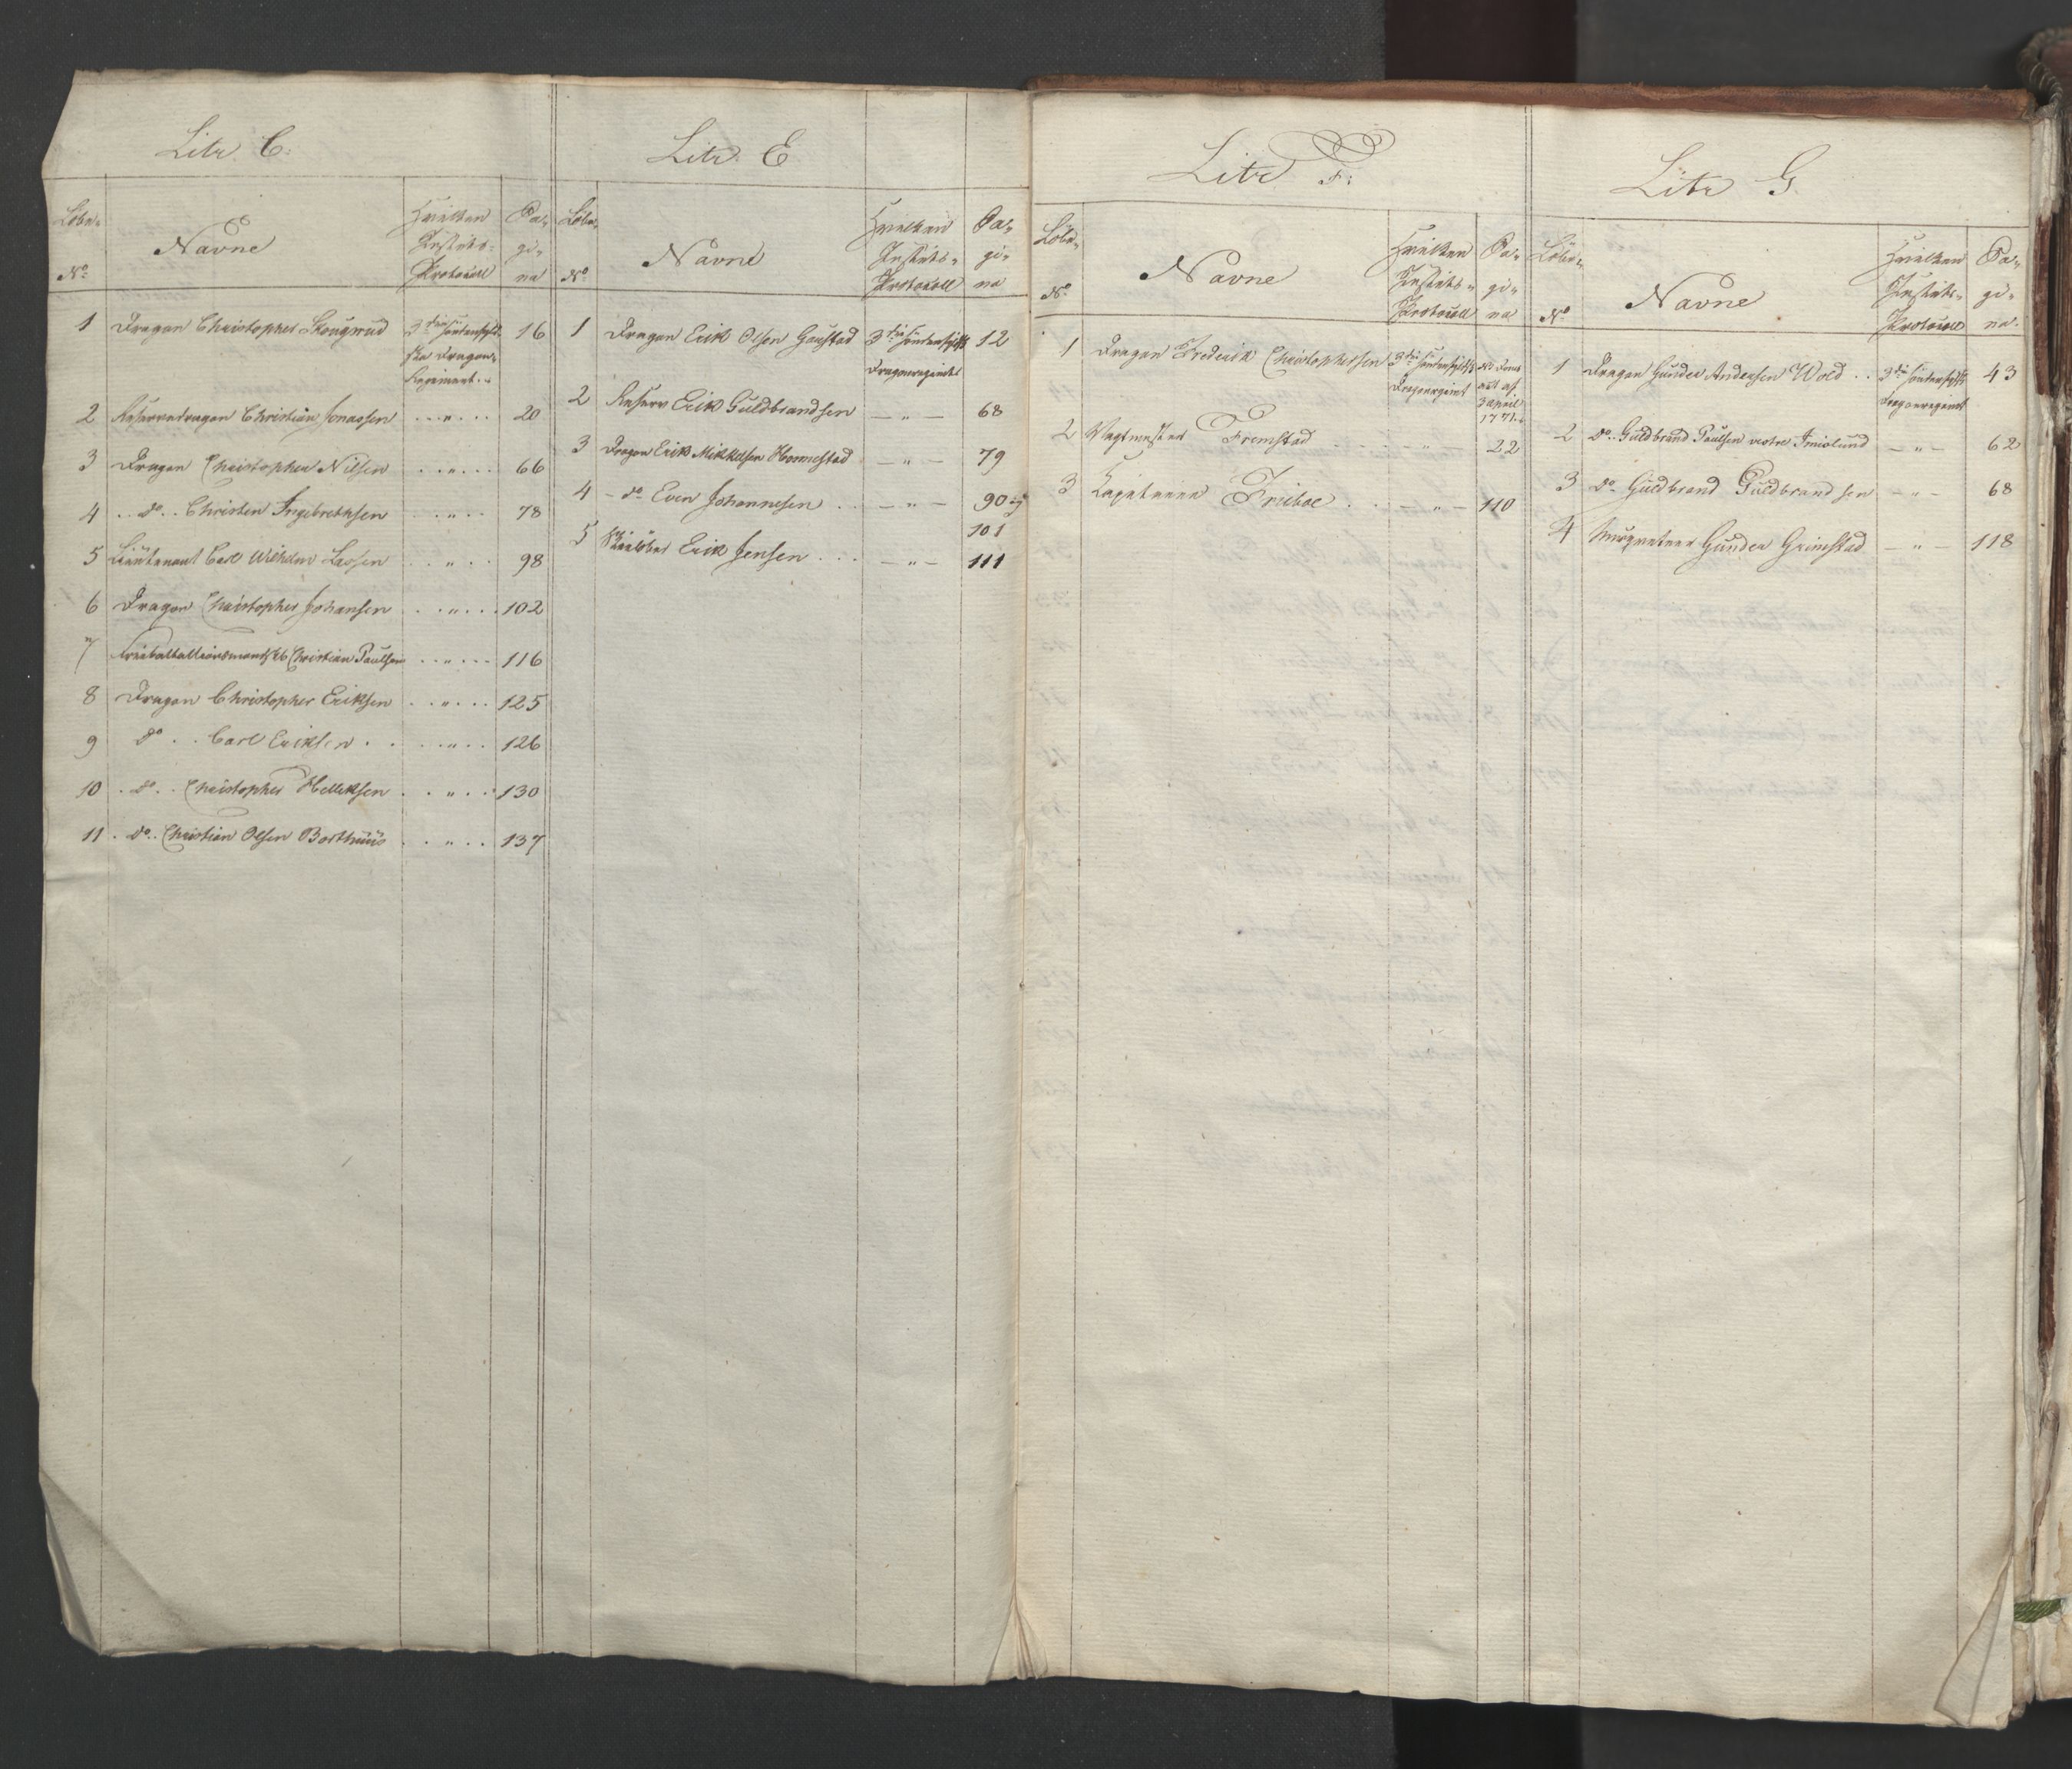 Litr. C:
Löbe- No
Navne
Hvilken Justits- Protocoll
Pa- gi- na
1 Dragon Christopher Skougrud 3die Söndenfjeldske Dragon- Regiment 16
2 Reservedragon Christian Jonassen „ 20
3 Dragon Christopher Nilsen „ 66
4 do Christen Ingebrethsen „ 78
5 Lieutenant Carl Wilhelm Lassen „ 98
6 Dragon Christopher Johansen „ 102
7 Christian Paulsen „ 116
8 Dragon Christopher Eriksen „ 125
9 do Carl Eriksen „ 126
10 do Christopher Helleksen „ 130
11 do Christian Olsen Borthuus „ 137
Litr. E
Löbe- No
Navne
Hvilken Justits- Protocoll
Pa- gi- na
1 Dragon Erik Olsen Gaustad 3die Söndenfjeldske Dragonregiment 12
2 Reserv Erik Guldbrandsen — „ — 68
3 Dragon Erik Mikkelsen Hornestad — „ — 79
4 – do Even Johannesen — „ — 90 og 101
5 Erik Jensen — „ — 111
Litr F:
Löbe- No
Navne
Hvilken Justits- Protocoll
Pa- gi- na
1 Dragon Frederik Christophersen 3die Söndenfjeldske Dragonregiment af 3 April 1771
2 Vagtmester Fremstad „ 22
3 Capitaine Frieboe — „ — 110
Litr G.
Löbe- No
Navne
Hvilken Justits- Protocoll
Pa- gi- na.
1 Dragon Gunder Andersen Wold 3die Söndenfjeldske Dragonregiment 43
2 do Guldbrand Paulsen vestre Imislund — „ — 62
3 do Guldbrand Guldbrandsen — „ — 68
4 Musqueteer Gunder Grimstad — „ — 118